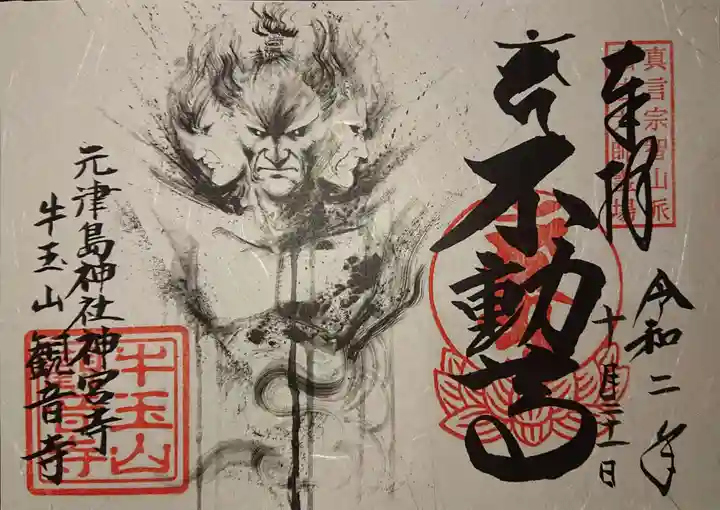 奉拝
令和二年
十月三十一日
不動尊
元津島神社神宮寺
牛玉山観音寺
牛玉山
観音寺